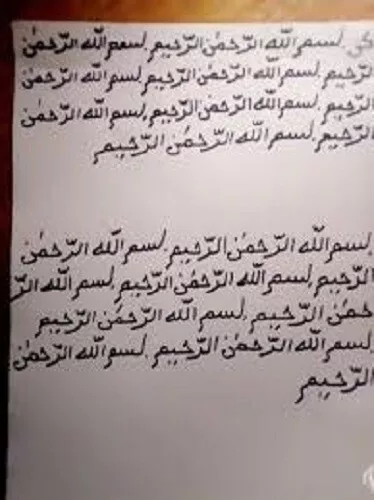 كي. بسم الله الرّحمٰن الرّحيم. بسم الله الرّحمٰن
الرّحيم. بسم الله الرّحمٰن الرّحيم. بسم الله الرّحمٰن
الرّحيم. بسم الله الرّحمٰن الرّحيم. بسم الله الرّحمٰن
الرّحيم. بسم الله الرّحمٰن الرّحيم
بسم الله الرّحمٰن الرّحيم. بسم الله الرّحمٰن
الرّحيم. بسم الله الرّحمٰن الرّحيم. بسم الله الرّ
حمٰن الرّحيم. بسم الله الرّحمٰن الرّحيم
بسم الله الرّحمٰن الرّحيم. بسم الله الرّحمٰن
الرّحيم